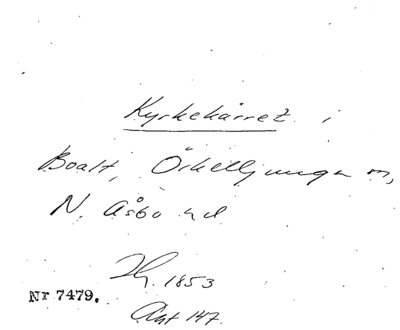 Kyrkekärret i
Boalt, Örkelljunga sn,
N. Åsbo hd
Hg. 1853
Nr 7479.
Ant 147.